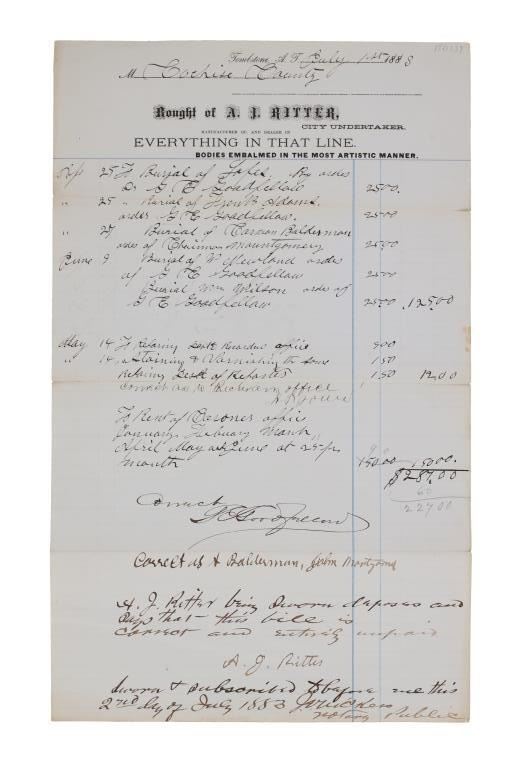 Tombstone, A. T. July 1st 1883
M Cochise County
Bought of A. J. RITTER,
CITY UNDERTAKER.
MANUFACTURER OF, AND DEALER IN
EVERYTHING IN THAT LINE.
BODIES EMBALMED IN THE MOST ARTISTIC MANNER.
25 To Burial of By order
Dr G E Goodfellow 2500
" 25 " Burial of Frank Adams
order G E Goodfellow. 2500
" 27 Burial of Balderman
order of Chairman Mountgomery 2500
June 9 Burial of Newland order
of G E Goodfellow 2500
Burial Wm Wilson order of
G E Goodfellow 2500 12500
May 14 To office 900
" 14 " Staining & Varnishing the same 150
150 1200
correct as to office
To Rent of Coroners offic
January, February March
April May and June at 25 pr
month 15000 15000
$28700
60
22700
Correct
G E Goodfellow
Correct as to Balderman, John Montgomery
A. J. Ritter being Sworn deposes and
says that this bill is
correct and entirely unpaid
A. J. Ritter
Sworn & subscribed to before me this
2nd day of July 1883
notary Public